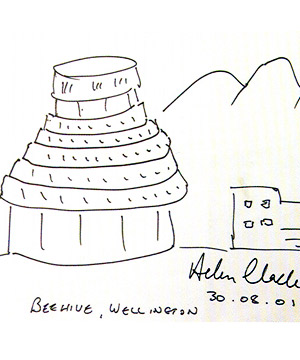 Helen Clark
30.08.01
BEEHIVE, WELLINGTON